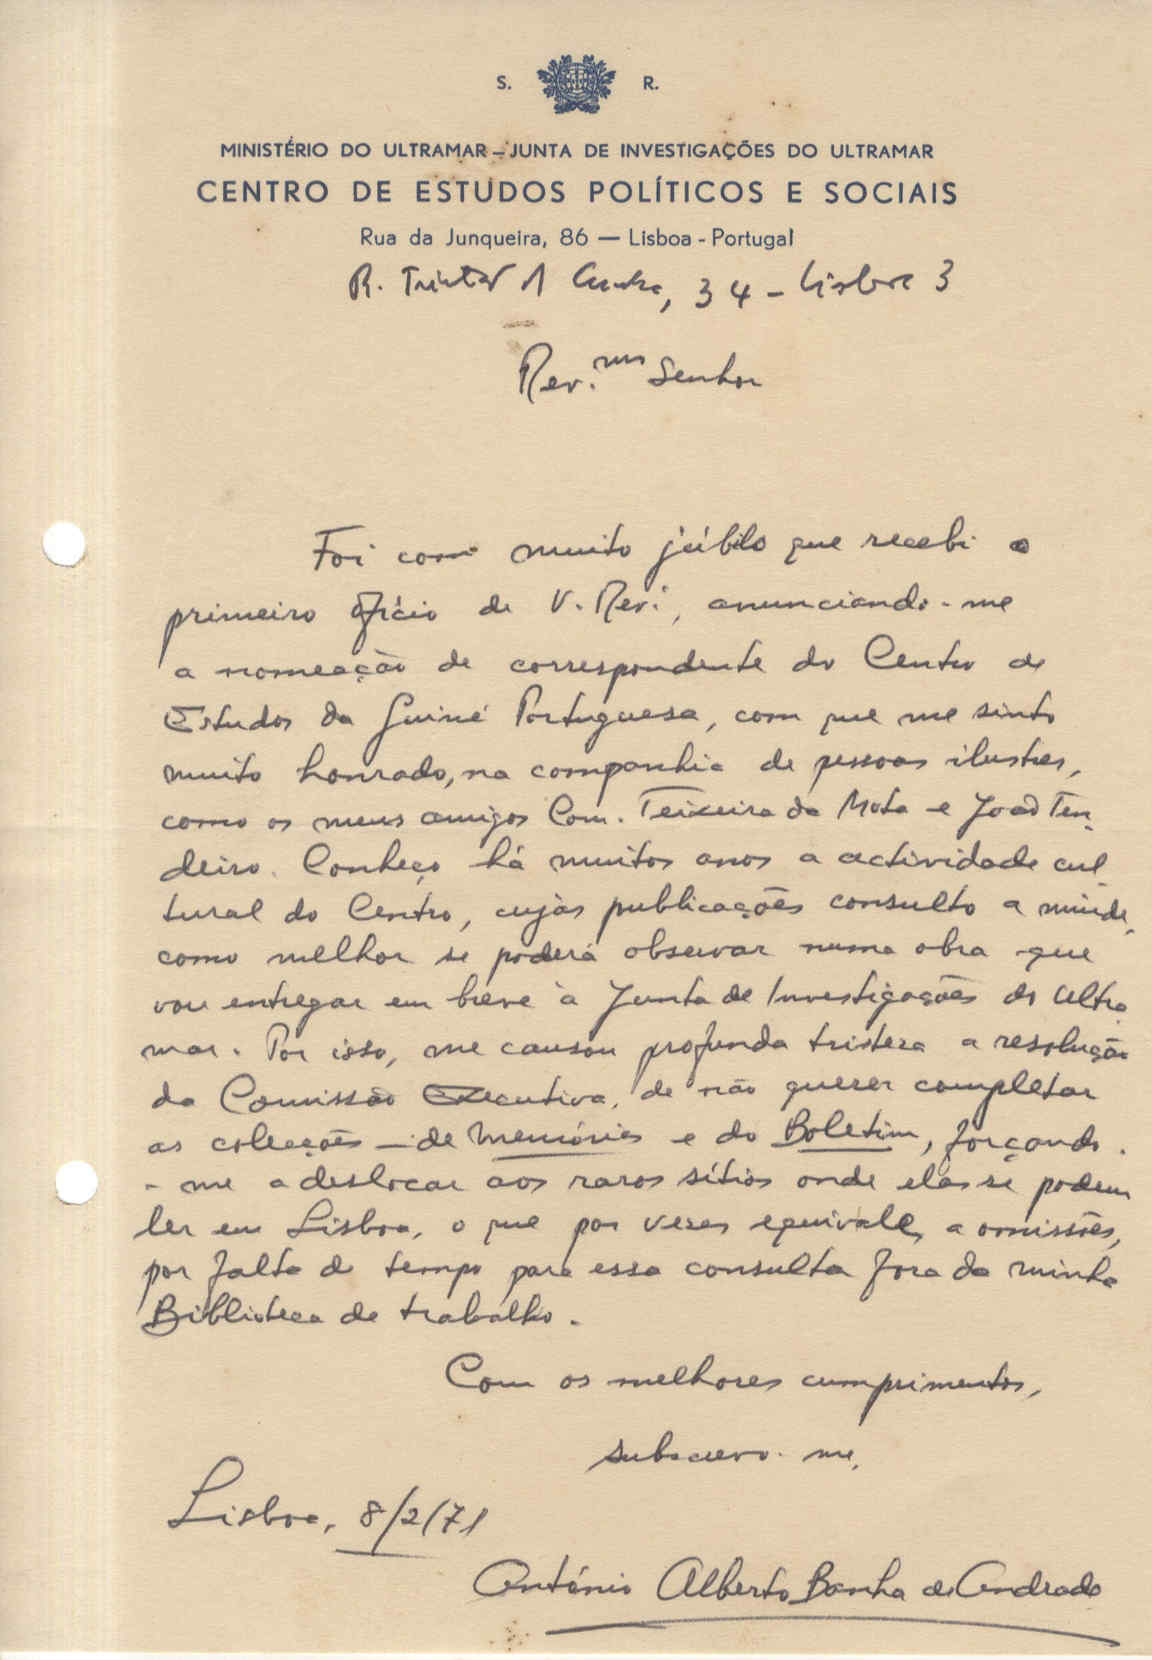 S. R.
MINISTÉRIO DO ULTRAMAR – JUNTA DE INVESTIGAÇÕES DO ULTRAMAR
CENTRO DE ESTUDOS POLÍTICOS E SOCIAIS
Rua da Junqueira, 86 — Lisboa - Portugal
R. Tristão da Cunha, 34 - Lisboa 3
Rev.mo Senhor
Foi com muito júbilo que recebi o
primeiro ofício de V. Rev.ª, anunciando-me
a nomeação de correspondente do Centro de
Estudos da Guiné Portuguesa, com que me sinto
muito honrado, na companhia de pessoas ilustres,
como os meus amigos Com. Teixeira da Mota e João Ten-
deiro. Conheço há muitos anos a actividade cul-
tural do Centro, cujas publicações consulto a miúde,
como melhor se poderá observar numa obra que
vou entregar em breve à Junta de Investigações do Ultra-
mar. Por isso, me causou profunda tristeza a resolução
da Comissão Executiva, de não querer completar
as colecções de Memórias e do Boletim, forçando-
-me a deslocar aos raros sítios onde elas se podem
ler em Lisboa, o que por vezes equivale a omissões,
por falta de tempo para essa consulta fora da minha
Biblioteca de trabalho.
Com os melhores cumprimentos,
subscrevo-me,
Lisboa, 8/2/71
António Alberto Banha de Andrade